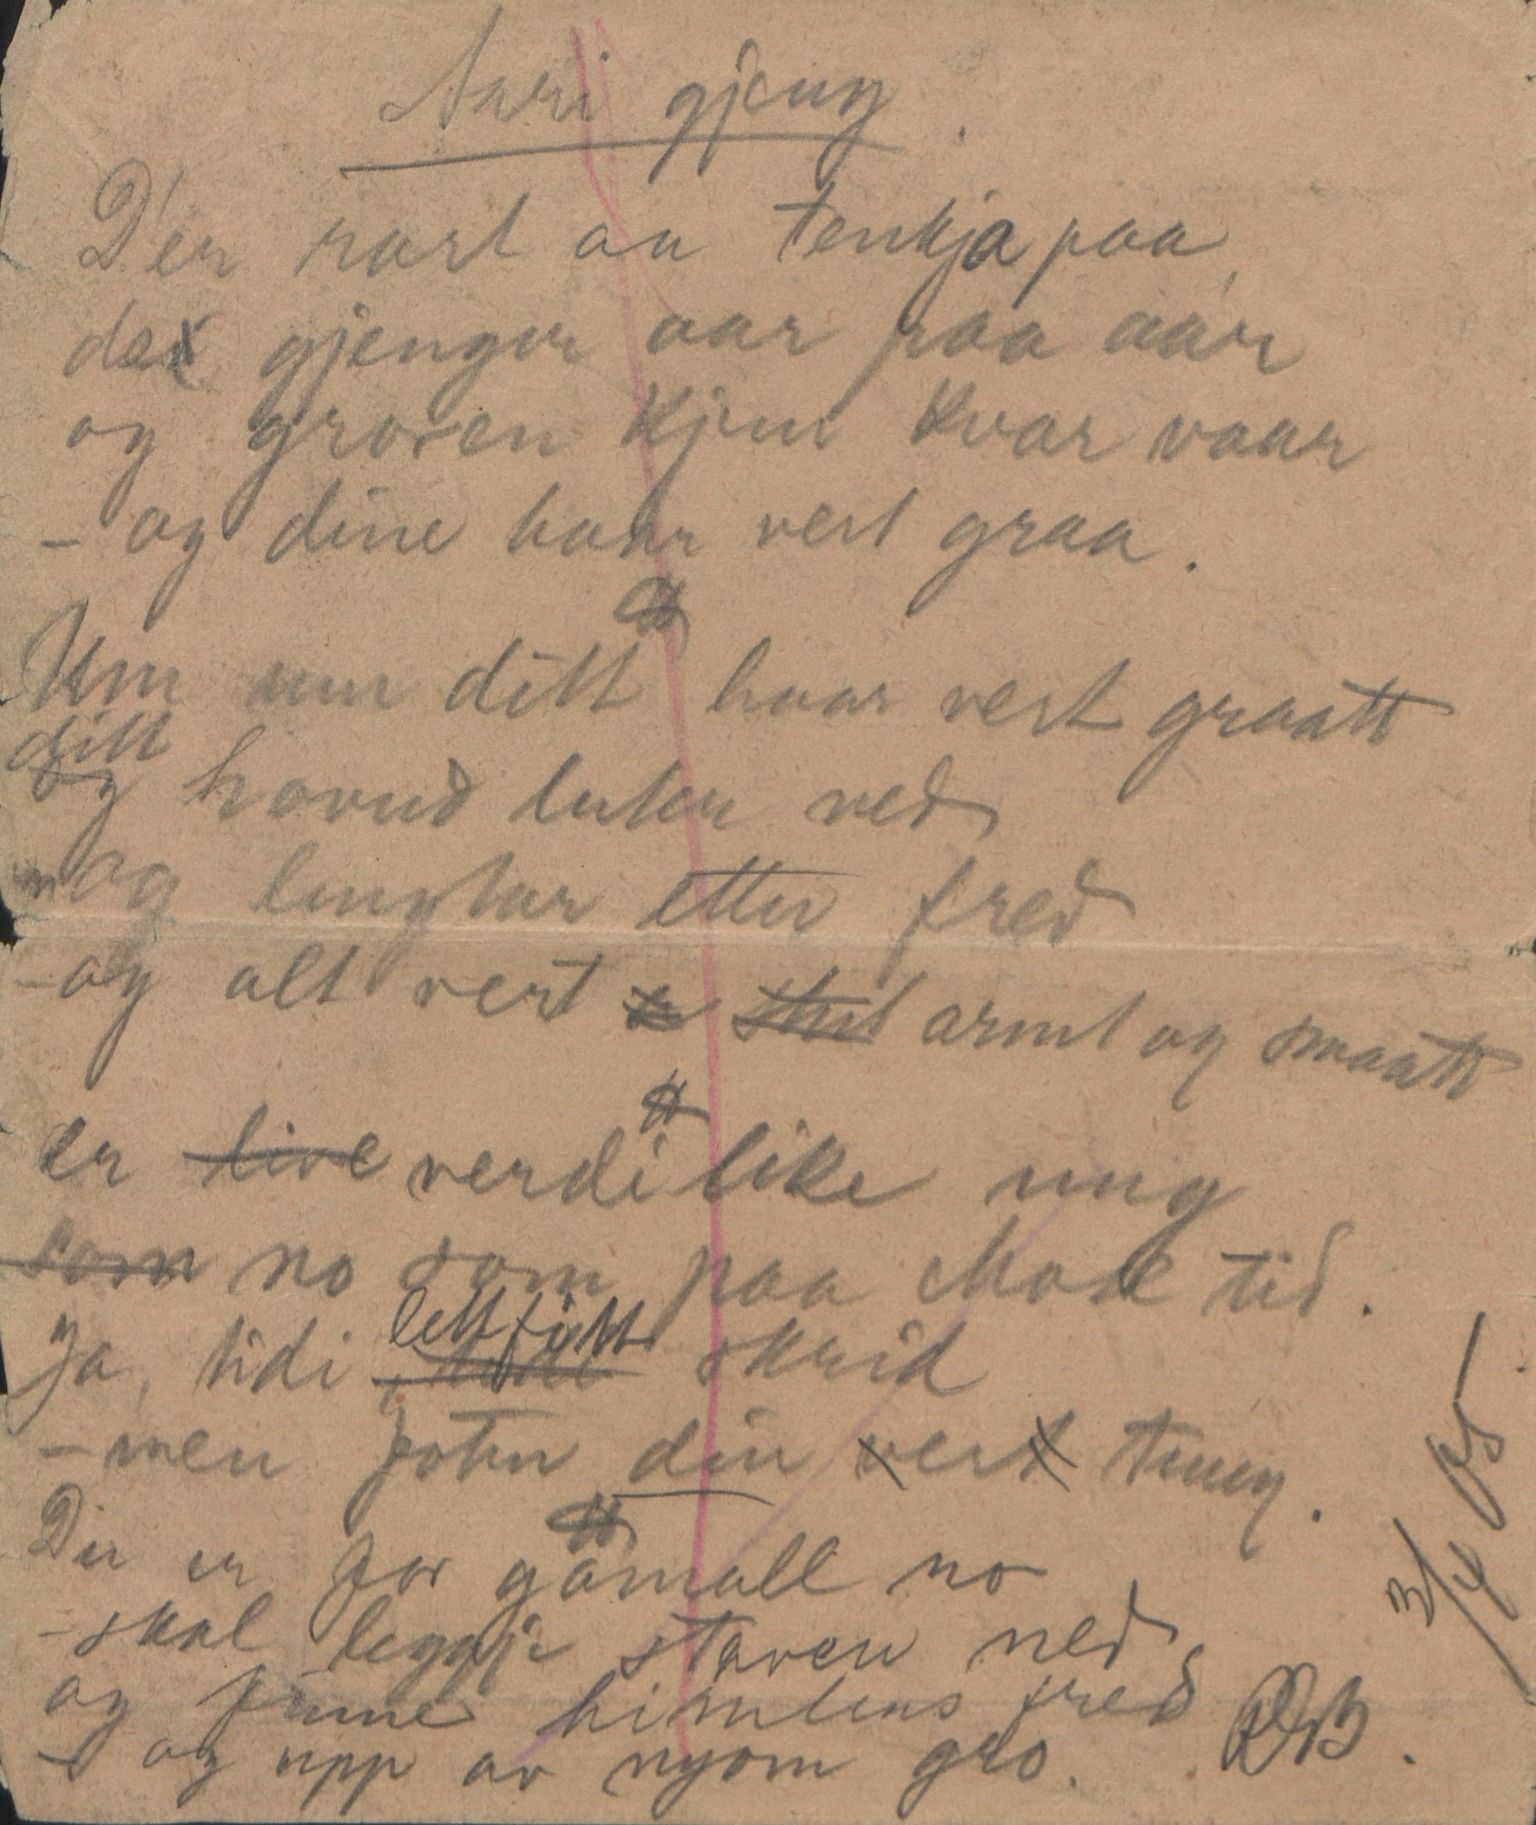 Aari gjeng.
D'er rart aa tenkja paa,
det gjenger aar paa aar
og groren kjem kvar vaar
- og dine haar vert graa.
#
Um enn ditt haar vert graatt
ditt
og hovud luter ned
og lengtar etter fred
- og alt vert armt og smaatt
#
er live verdi like ung
som no som paa Mose tid.
lettfött
Ja, tidi skrid
- men foten din vert tung.
#
Du er for gamall no
- skal leggje staven ned,
og finne himlens fred
- og upp av nyom gro.
3/4 05